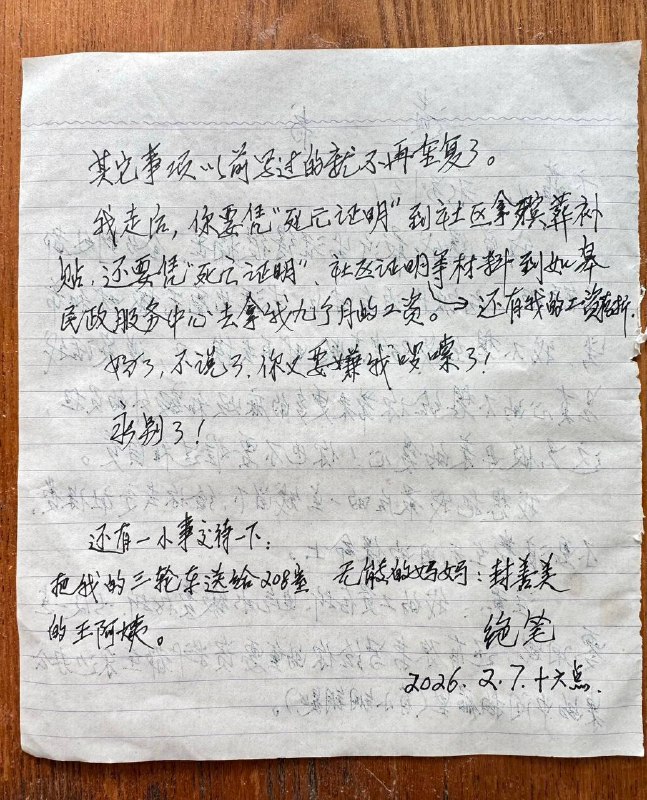 其它事项以前写过的就不再重复了。
我走后，你要凭“死亡证明”到社区拿殡葬补
贴，还要凭“死亡证明”、社区证明等材料到如皋
民政服务中心去拿我九个月的工资。→还有我的工资存折.
好了，不说了，你又要嫌我啰嗦了！
永别了！
还有一小事交待一下：
把我的三轮车送给208室
的王阿姨。
无能的妈妈：封善美
绝笔
2026.2.7.十六点.